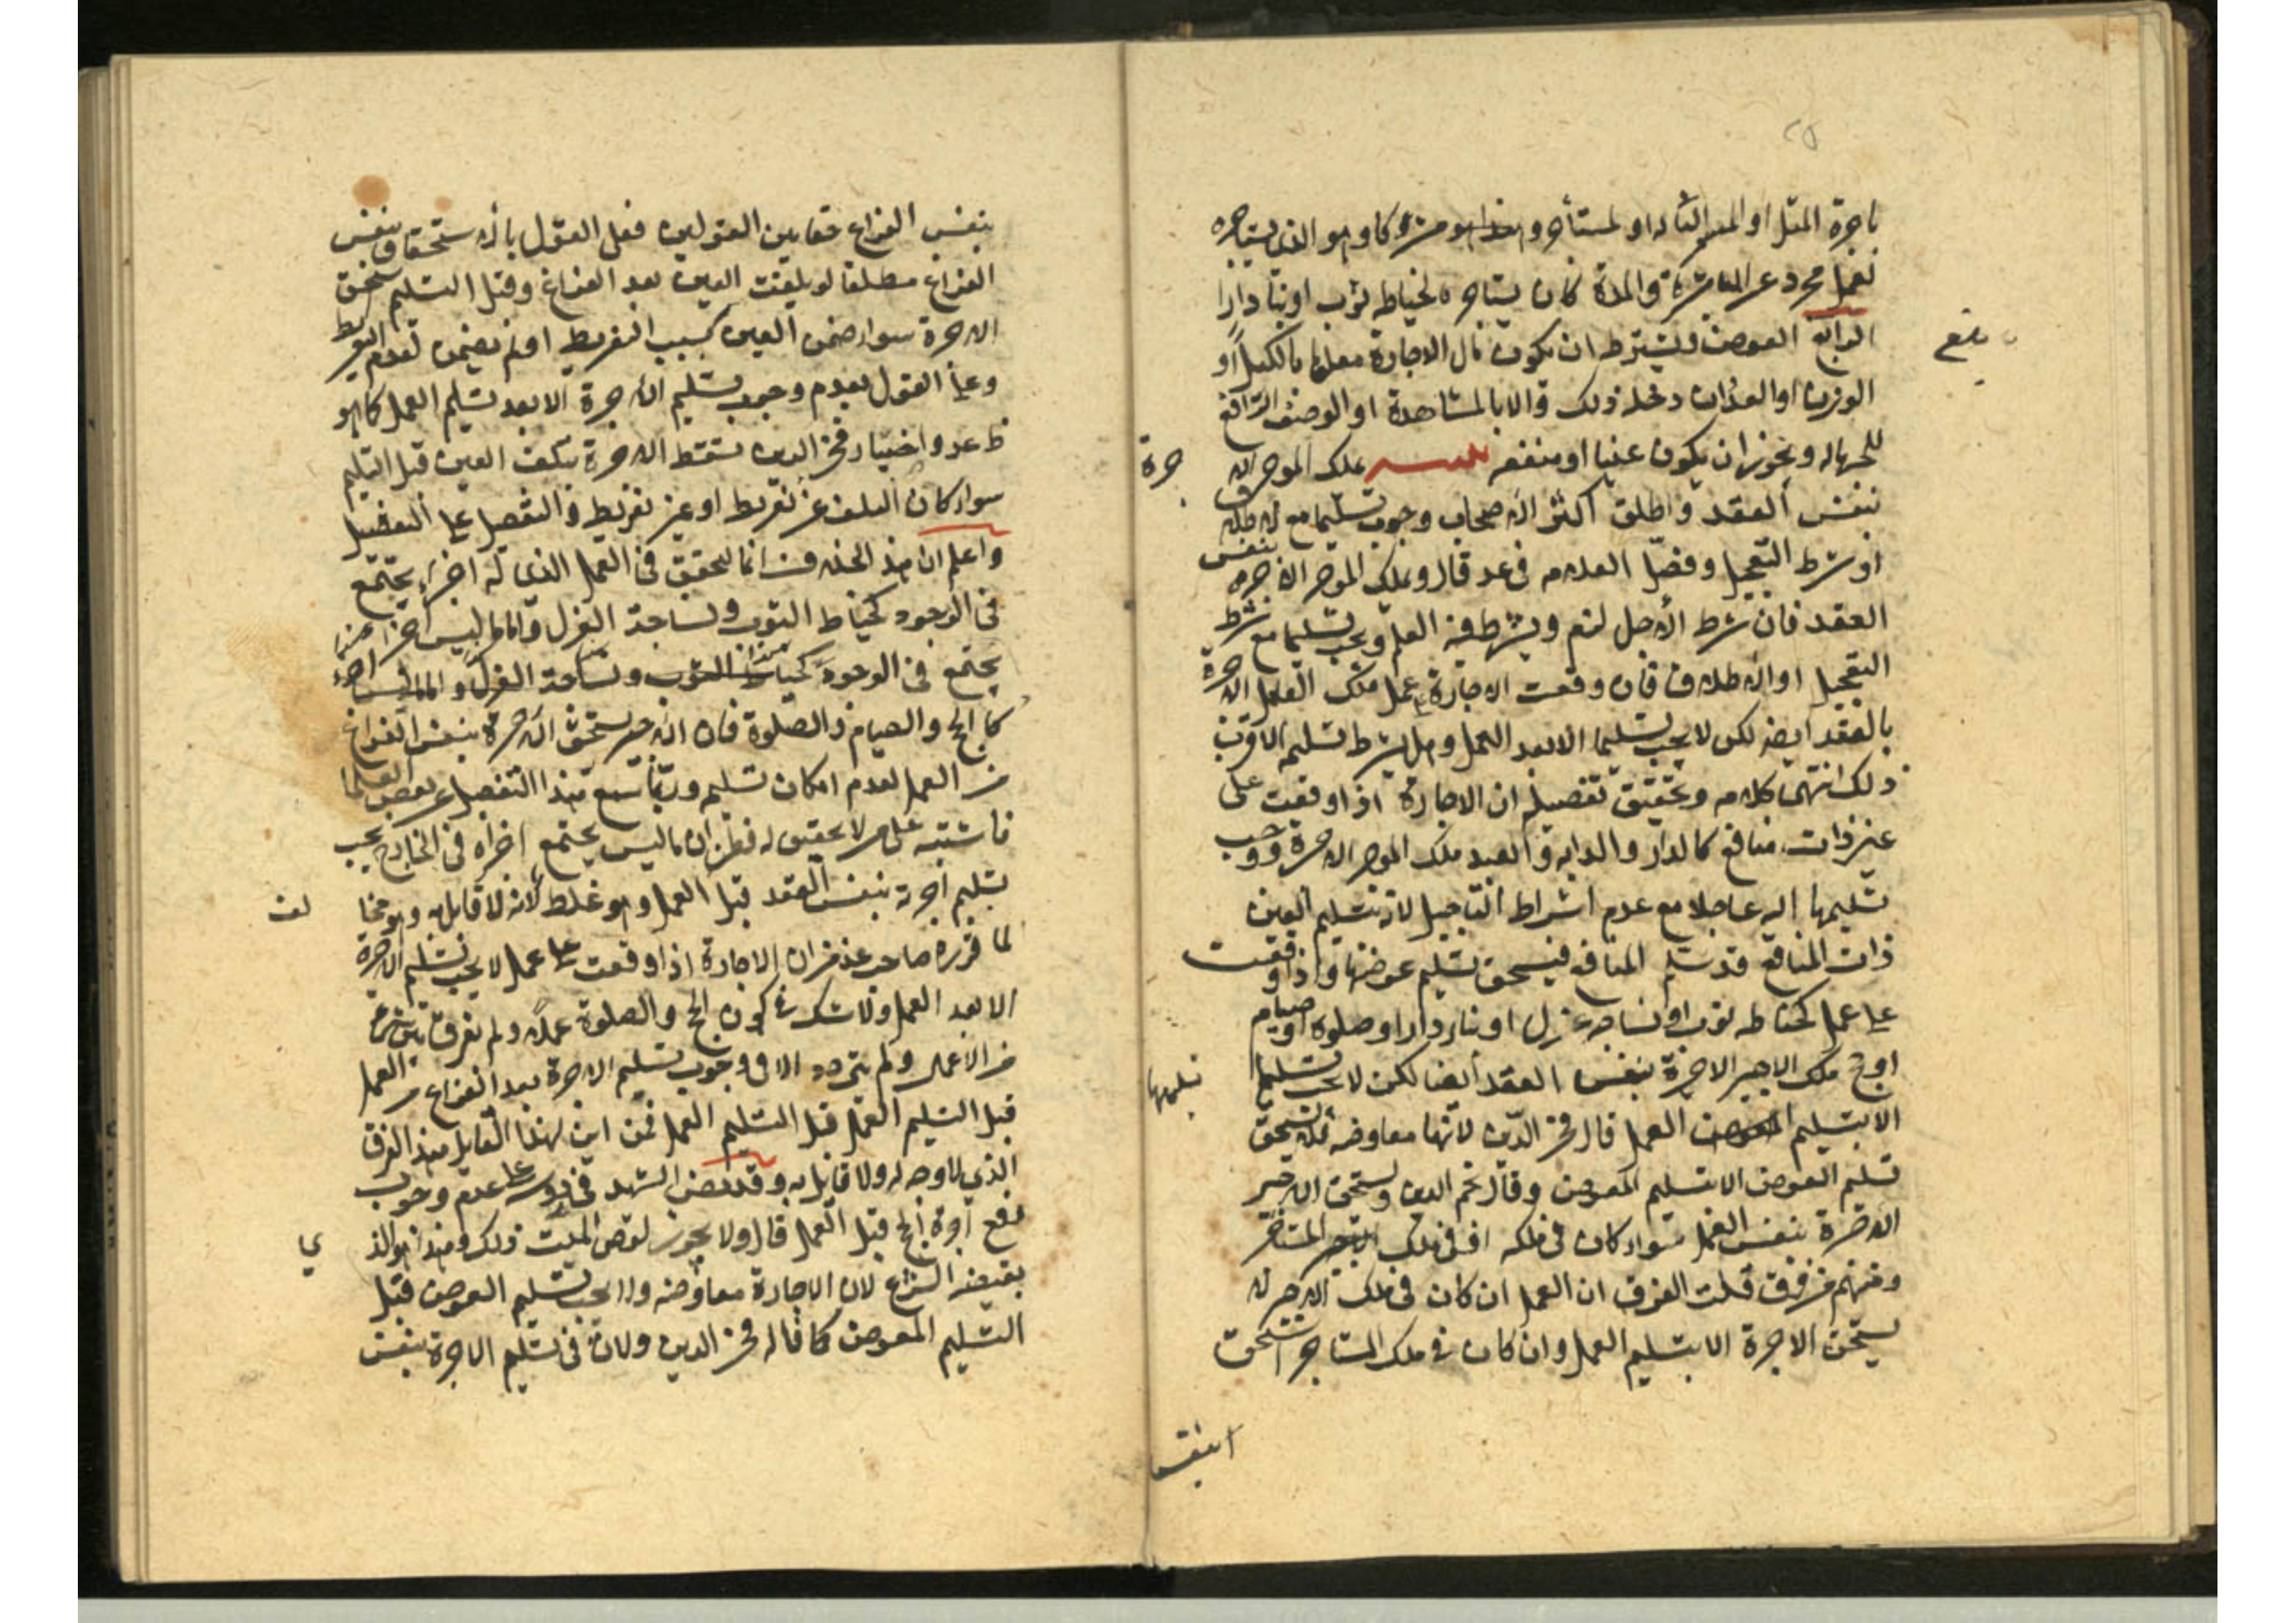 باجرة المثل او المستأجر وهو الذي يستاجره
لعمل مجرد عن المباشرة والمدة كان يستاجره لخياطه ثوب او بنا دارا
الرابع العوض ويشترط ان يكون مال الاجارة معلوما بالكيل او
الوزن او العد ان دخله ذلك والا بالمشاهدة او الوصف الرافع
للجهاله ويجوز ان يكون عينا او منفعه يملك الموجر الا
جرة
بنفس العقد واطلق اكثر الاصحاب وجوب تسليمها مع الاطلاق
او شرط التعجيل وفصل العلامه في عد قال ويملك الموجر الاجرة بنفس
العقد فان شرط الاجل لزم ويشترط فيه العلم ويجب تسليمها مع شرط
التعجيل او الاطلاق فان وقعت الاجارة على عمل ملك العامل الاجرة
بالعقد ايضا لكن لا يجب تسليمها الا بعد العمل وهل يشترط تسليمه الاقرب
ذلك انتهى كلامه وتحقيق تفصيله ان الاجارة اذا وقعت على
عين ذات منافع كالدار والدابه والعبد ملك الموجر الاجرة ووجب
تسليمها اليه عاجلا مع عدم اشراط التاجيل لانه بتسليم العين
ذات المنافع قد سلم المنافع فيستحق تسليم عوضها واذا وقعت
على عمل كخياطه ثوب او نساجه غزل او بناء دار او صلوة او صيام
او حج ملك الاجير الاجرة بنفس العقد ايضا لكن لا يجب تسليمها
الا بتسليم العمل قال فخر الدين لانها معاوضه فلا يستحق
تسليم العوض الا بتسليم المعوض وقال نجم الدين ويستحق الاجير
الاجرة بنفس العمل سواء كان في ملكه او في ملك المستاجر
ومنهم من فرق قلت الفرق ان العمل ان كان في ملك الاجير لا
يستحق الاجرة الا بتسليم العمل وان كان في ملك المستاجر استحق
بنفس الفراغ حقا بين القولين فعلى القول بانه يستحقها بنفس
الفراغ مطلقا لو تلفت العين بعد الفراغ وقبل التسليم يستحق
الاجرة سواء ضمن العين بسبب التفريط او لم يضمن لعدم التفريط
وعلى القول بعدم وجوب تسليم الاجرة الا بعد تسليم العمل كما هو
ظ عد واختيار فخر الدين تسقط الاجرة بتلف العين قبل التسليم
سواء كان التلف عن تفريط او غير تفريط والتفصيل على التفصيل
واعلم ان هذا الخلاف انما يتحقق في العمل الذي له اجزاء يجتمع
في الوجود كخياط الثوب ونساجة الغزل واما ما ليس اجزا
يجتمع في الوجود كخياط الثوب ونساجة الغزل واما ما ليس اجزاء
كالحج والصيام والصلوة فان الاجير يستحق الاجرة بنفس الفراغ
من العمل لعدم امكان تسليمه وربما سمع هذا التفصيل عن بعض العلما
فاشتبه على من لا تحقيق له فظن ان ما ليس يجتمع اجزاه في الخارج يجب
تسليم اجرته بنفس العقد قبل العمل وهو غلط لانه لا قايل به وهو مخا
لف
لما قرره صاحب عد من ان الاجارة اذا وقعت على عمل لا يجب تسليم الاجرة
الا بعد العمل ولا شك في كون الحج والصلوة عملا ولم يفرق بين شي
من الاعمال ولم يتردد الا في وجوب تسليم الاجرة بعد الفراغ من العمل
قبل التسليم العمل قبل التسليم العمل فمن اين لهذا القايل هذا الفرق
الذي لا وجه له ولا قايل به وقد نص الشهيد في دروسه على عدم وجوب
دفع اجرة الحج قبل العمل قال ولا يجوز لوصي الميت ذلك وهذا هو الذ
ي
يقتضيه الشرع لان الاجارة معاوضه ولا يجب تسليم العوض قبل
التسليم المعوض كما قاله فخر الدين ولان في تسليم الاجرة بنفس